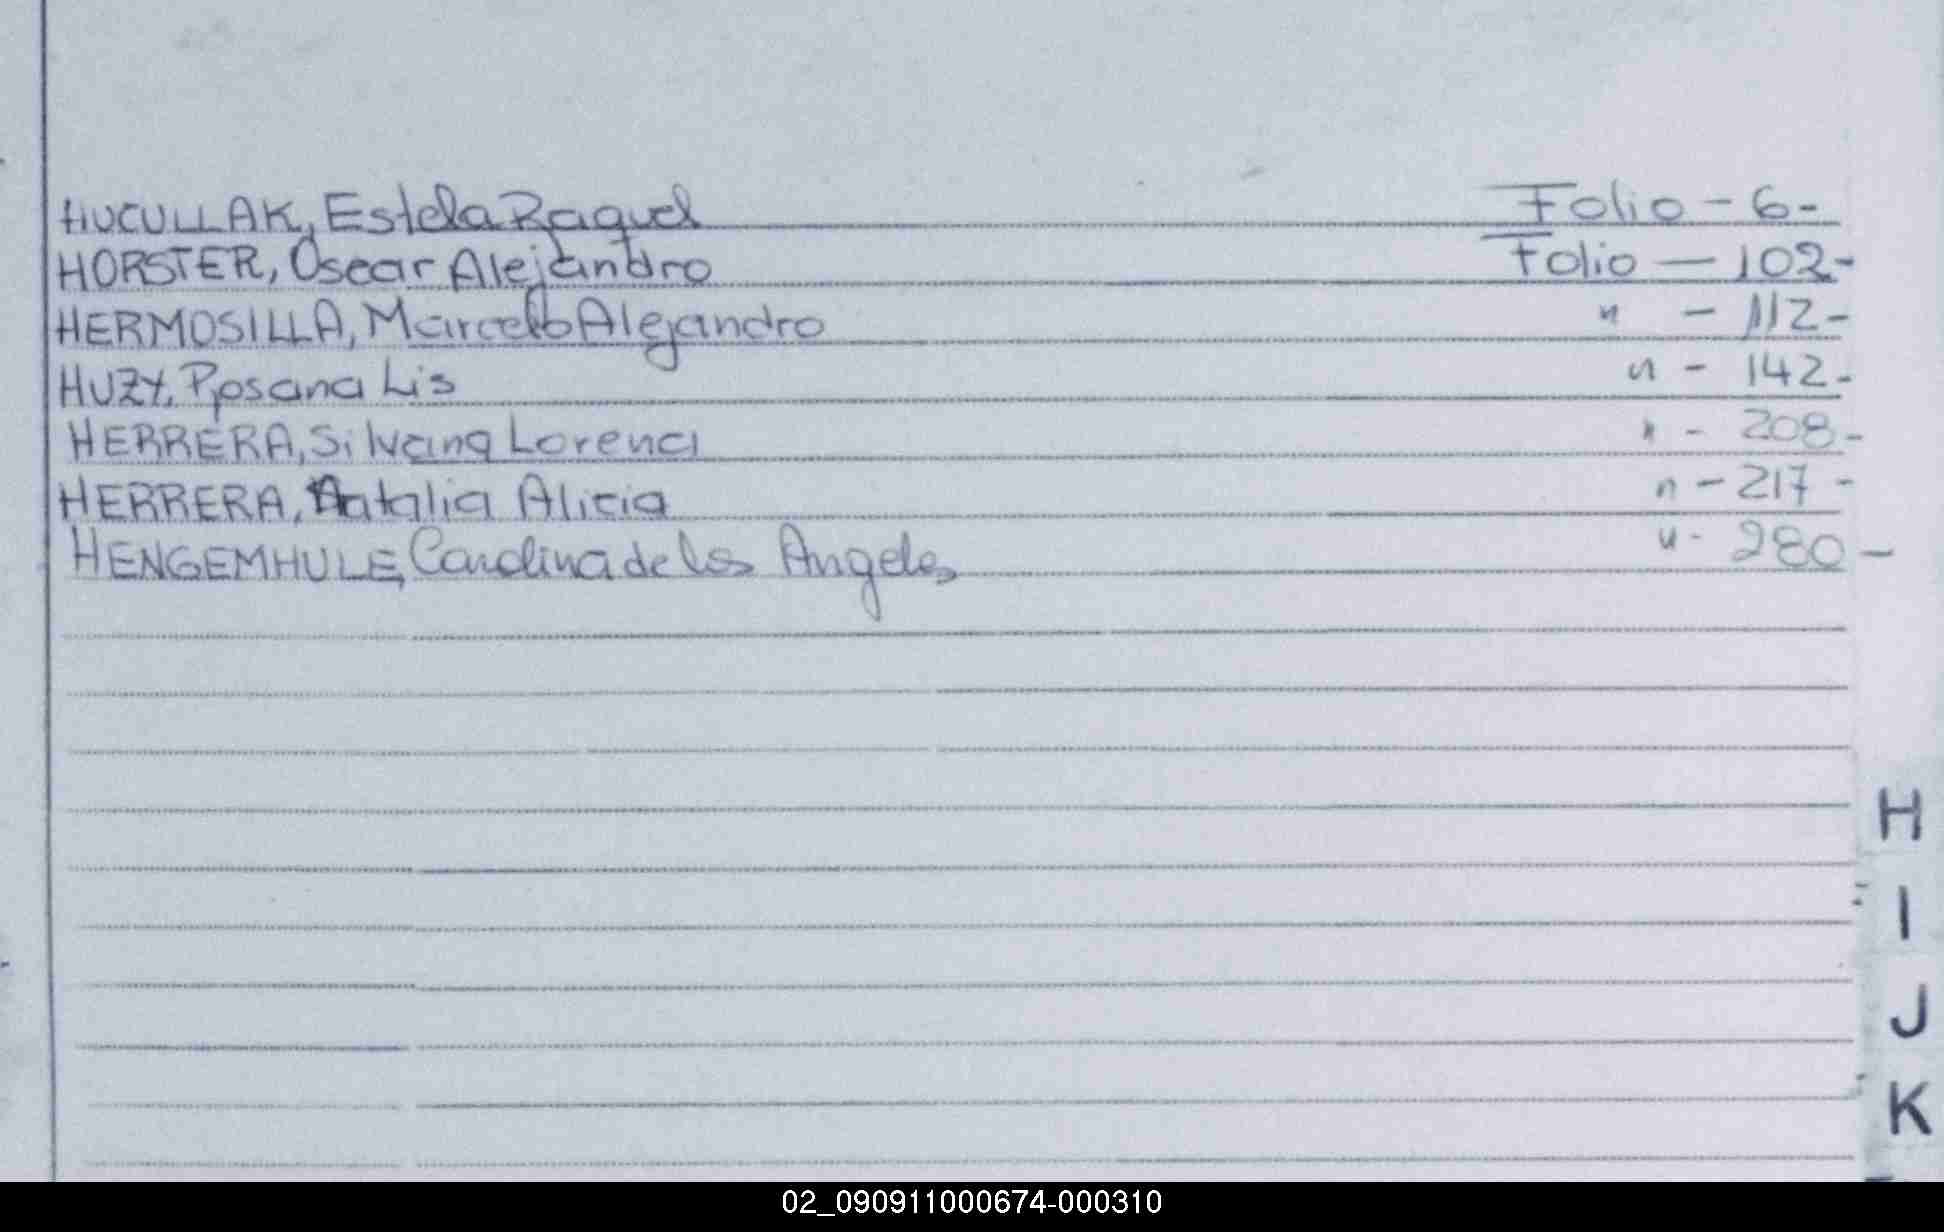 HUCULLAK, Estela Raquel Folio - 6 -
HORSTER, Oscar Alejandro Folio - 102 -
HERMOSILLA, Marcelo Alejandro " - 112 -
HUZY, Rosana Lis " - 142 -
HERRERA, Silvana Lorena " - 208 -
HERRERA, Natalia Alicia " - 217 -
HENGEMHULE, Carolina de los Angeles " - 280 -
H
I
J
K
02_090911000674-000310